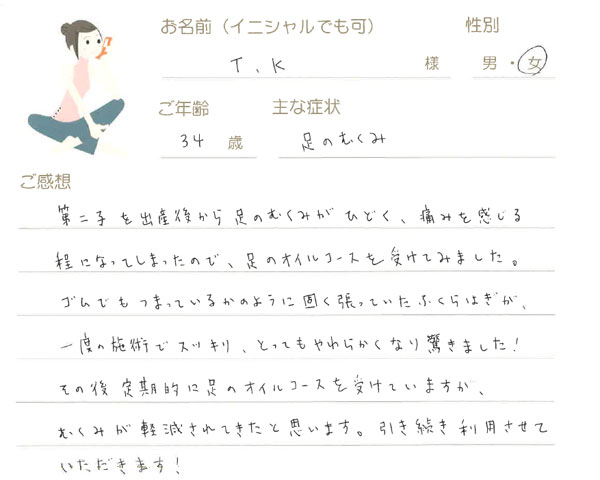 お名前（イニシャルでも可） 性別
T.K 様 男・女
ご年齢 主な症状
34 歳 足のむくみ
ご感想
第二子を出産後から足のむくみがひどく、痛みを感じる
程になってしまったので、足のオイルコースを受けてみました。
ゴムでもつまっているかのように固く張っていたふくらはぎが、
一度の施術でスッキリ、とってもやわらかくなり驚きました！
その後定期的に足のオイルコースを受けていますが、
むくみが軽減されてきたと思います。引き続き利用させて
いただきます！